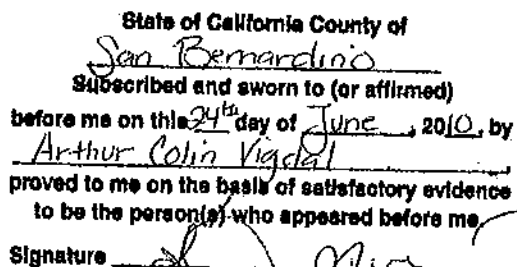 State of California County of
San Bernardino
Subscribed and sworn to (or affirmed)
before me on this 24th day of June, 2010, by
Arthur Colin Vigdal
proved to me on the basis of satisfactory evidence
to be the person(s) who appeared before me
Signature